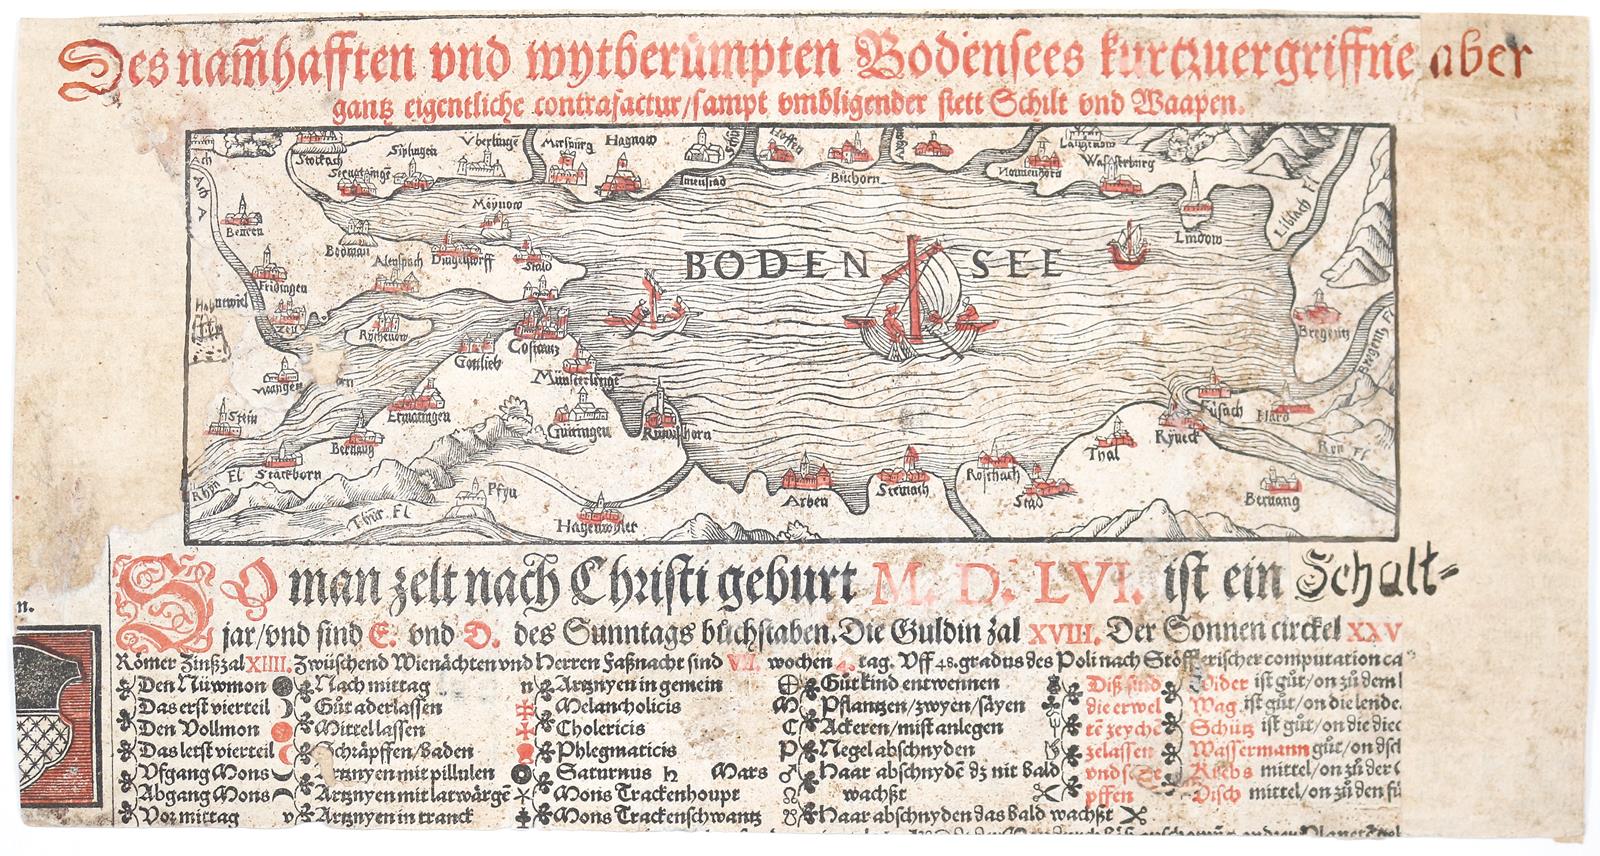 Des nam̃hafften vnd wytberůmpten Bodensees kurtzuergriffne aber
gantz eigentliche contrafactur/sampt vmbligender stett Schilt vnd Waapen.
Stockach
Siplingen
Vberlingẽ
Merspurg
Hagnow
Langenow
Ach
Ach A
Wasserburg
Büchorn
Meynow
Lindow
Bodman
BODEN SEE
Dingelstorff
Stald
Fridingen
Zell
Rychenow
Bregentz
Gotlieb
Costantz
Münsterlingẽ
Wangen
Ermatingen
Stein
Güttingen
Füsach
Hard
Ryneck
Rhyn Fl
Thal
Stackborn
Roschach
Stad
Arben
Steinach
Pfyn
Hagenwyler
Thur Fl
Bernang
n.
SO man zelt nach Christi geburt M. D. LVI. ist ein Schalt-
jar/vnd sind E. vnd D. des Sunntags bůchstaben. Die Guldin zal XVIII. Der Sonnen circkel XXV
Römer Zinßzal XIIII. Zwüschend Wienächten vnd Herren Faßnacht sind VII. wochen 4. tag. Vff 48. gradus des Poli nach Stöfflerischer computation ca
Den Nüwmon Nach mittag n Artznyen in gemein Gůt kind entwennen Diß sind Wider ist gůt/on zů dem
Das erst vierteil Gůt aderlassen Melancholicis Pflantzen/zwyen/säyen die erwel Wag ist gůt/on die lende.
Den Vollmon Mittel lassen Cholericis Ackeren/mist anlegen tẽ zeychẽ Schütz ist gůt/on die diec
Das letst vierteil Schräpffen/Baden Phlegmaticis Negel abschnyden zelassen Wassermann gůt/on
Vfgang Mons Artznyen mit pillulen Saturnus ♄ Mars ♂ Haar abschnydẽ dz nit bald Krebs mittel/on zů der
Abgang Mons Artznyen mit latwärgẽ Mons Trackenhoupt ☊ wachßt pffen Visch mittel/on zů den fů
Vor mittag v Artznyen in tranck Mons Trackenschwantz ☋ Haar abschnyden das bald wachßt